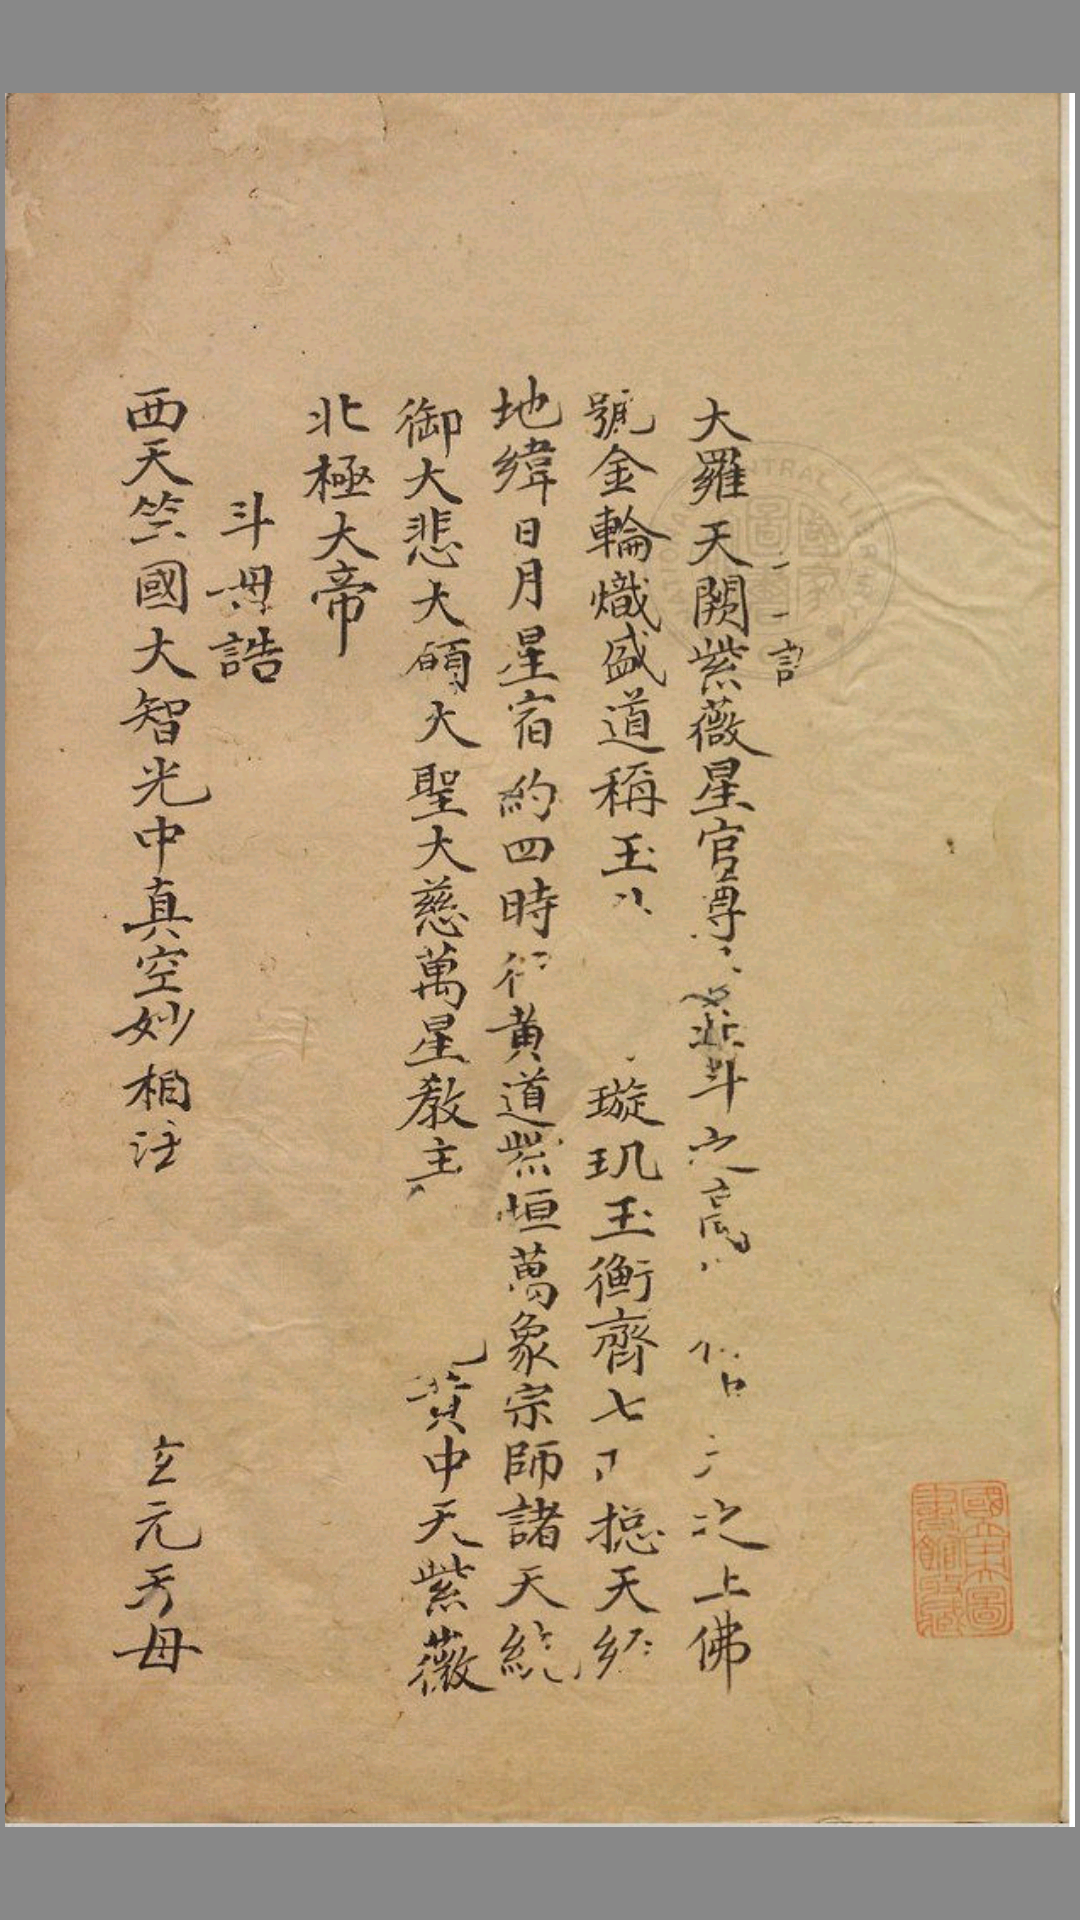 誥
大羅天闕紫薇星宮尊 北斗之高 之上佛
號金輪熾盛道稱玉 璇玑玉衡齊七 揔天經
地緯日月星宿約四時行黄道紫垣萬象宗師諸天統
御大悲大願大聖大慈萬星教主 黄中天紫薇
北極大帝
斗母誥
西天竺國大智光中真空妙相法 玄元天母
國立中央圖書館收藏